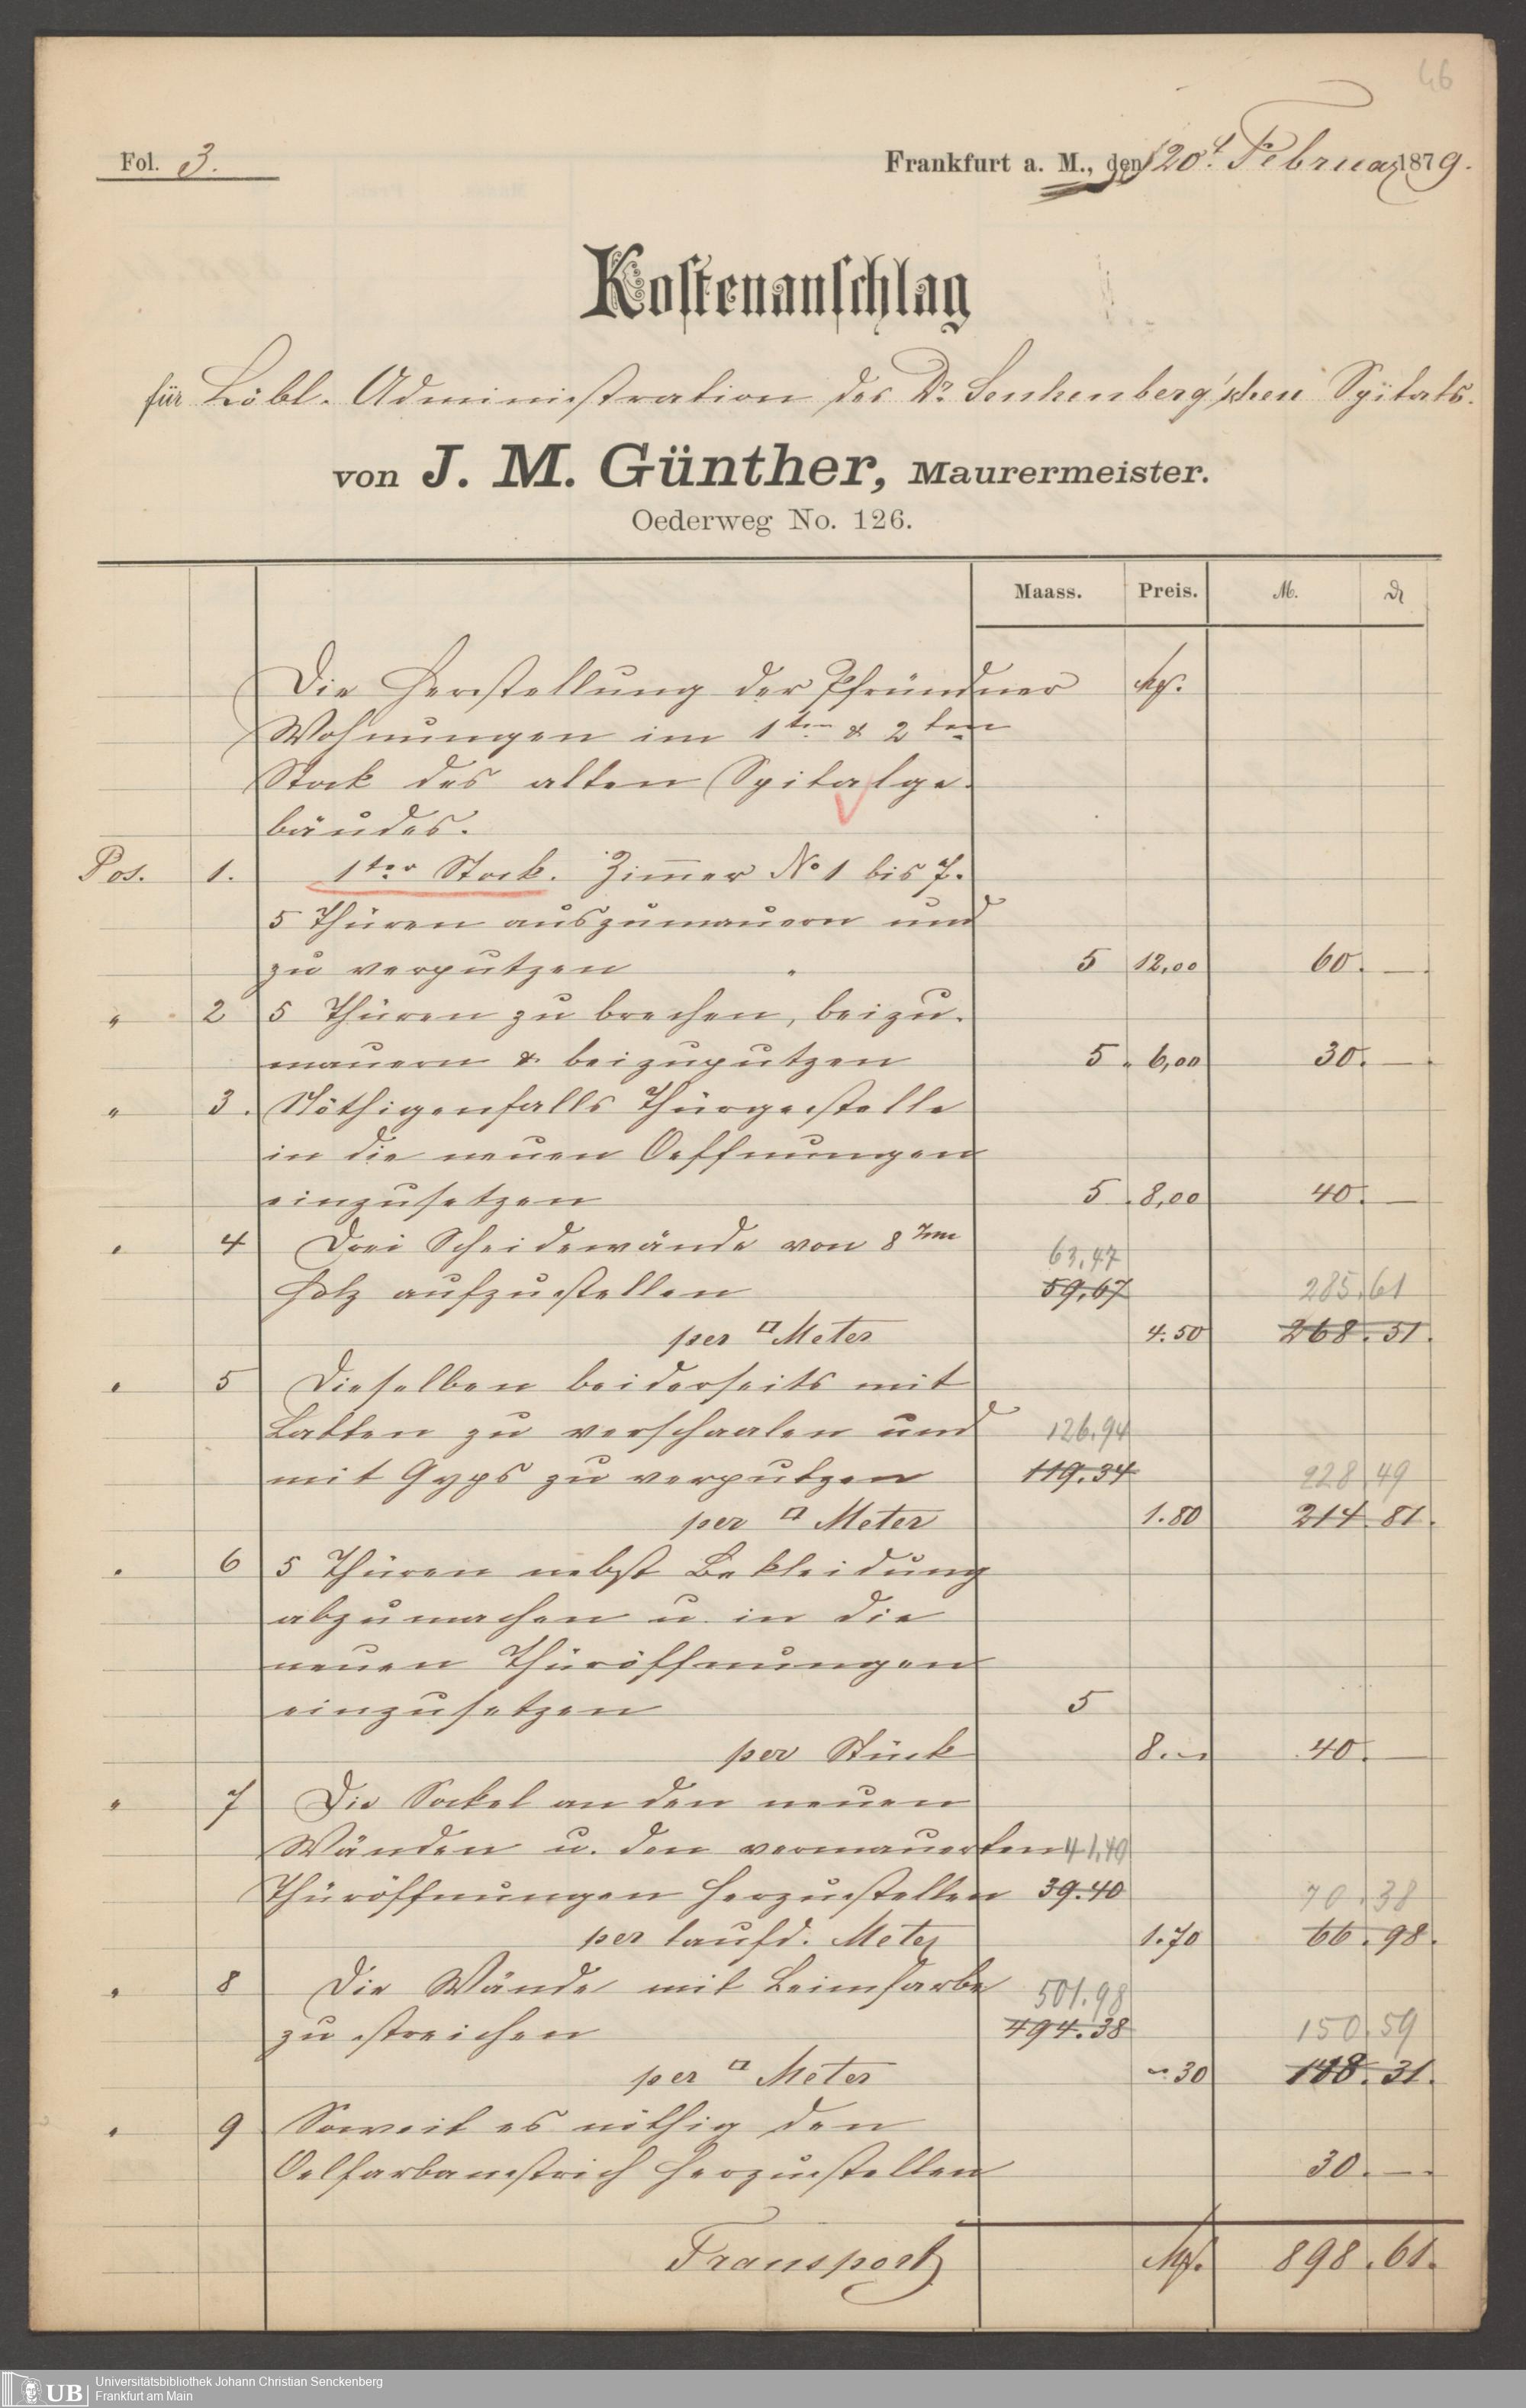 46
Fol. 3. Frankfurt a. M., den 20t. Februar 1879.
Kostenanschlag
für Löbl. Administration des Dr. Senkenberg'schen Spitals.
von J. M. Günther, Maurermeister.
Oederweg No. 126.
Maass. Preis. M. ₰
Die Herstellung der Pfründner Mk.
Wohnungen im 1ten & 2ten
Stock des alten Spitalge-
bäudes.
Pos. 1. 1ter Stock. Zimmer No 1 bis 7.
5 Thüren auszumauern und
zu verputzen 5 12,00 60. —.
" 2 5 Thüren zu brechen, beizu-
mauern & beizuputzen 5 " 6,00 30. —.
" 3. Nöthigenfalls Thürgestelle
in die neuen Oeffnungen
einzusetzen 5 . 8,00 40. —
" 4 Drei Scheidewände von 8 cm 63,47
Holz aufzustellen 59,67 285.61
per □ Meter 4.50 268.51.
" 5 Dieselben beiderseits mit
Latten zu verschaalen und 126,94
mit Gyps zu verputzen 119.34 228.49
per □ Meter 1.80 214.81.
" 6 5 Thüren nebst Bekleidung
abzumachen u. in die
neuen Thüröffnungen
einzusetzen 5
per Stück 8.— 40. —
" 7 Die Sockel an den neuen
Wänden u. den vermauerten 41,40
Thüröffnungen herzustellen 39.40 70.38
per laufd. Meter 1.70 66.98.
" 8 Die Wände mit Leimfarbe 501.98
zu streichen 494.38 150.59
per □ Meter –.30 148.31.
" 9 Soweit es nöthig den
Oelfarbanstrich herzustellen 30. —.
Transport Mk. 898.61.
UB Universitätsbibliothek Johann Christian Senckenberg
Frankfurt am Main